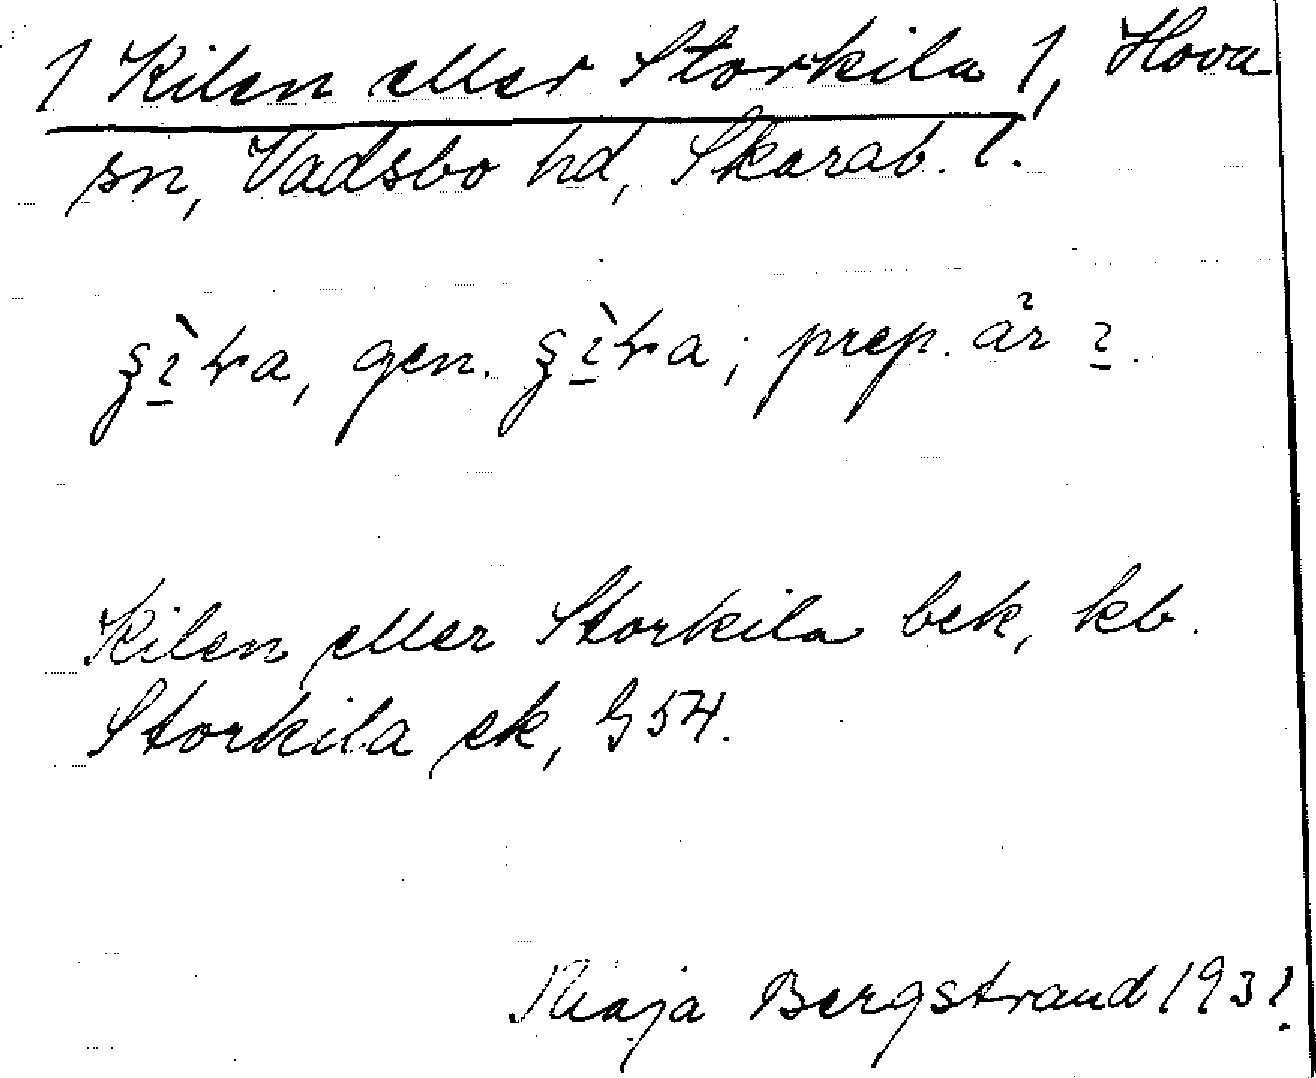 1 Kilen eller Storkila 1, Hova
sn, Vadsbo hd, Skarab. l.
gen. ; prep. är
Kilen eller Storkila bek, kb.
Storkila ek, G54.
Maja Bergstrand 1931